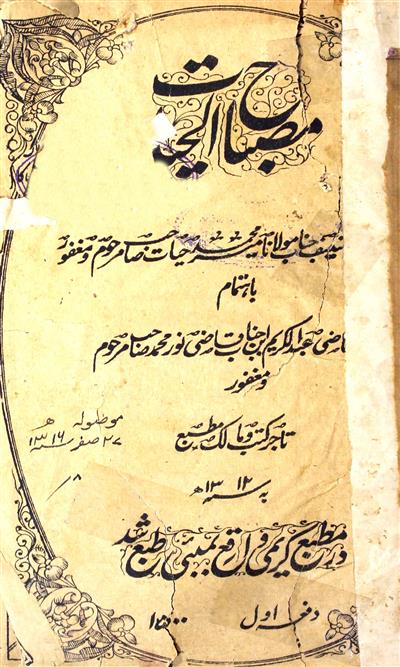 مصباح الحیات
تصنیف جناب مولانا میر محمد حیات صاحب مرحوم و مغفور
باہتمام
قاضی عبدالکریم ابن جناب قاضی نور محمد صاحب مرحوم
و مغفور
تاجر کتب و مالک مطبع
۲۷ صفر سنہ ۱۳۱۶ ھ
بہ سنہ ۱۳۱۲ ھ
۸/
در مطبع کریمی واقع بمبئی طبع شد
دفعہ اول ۱۵۰۰